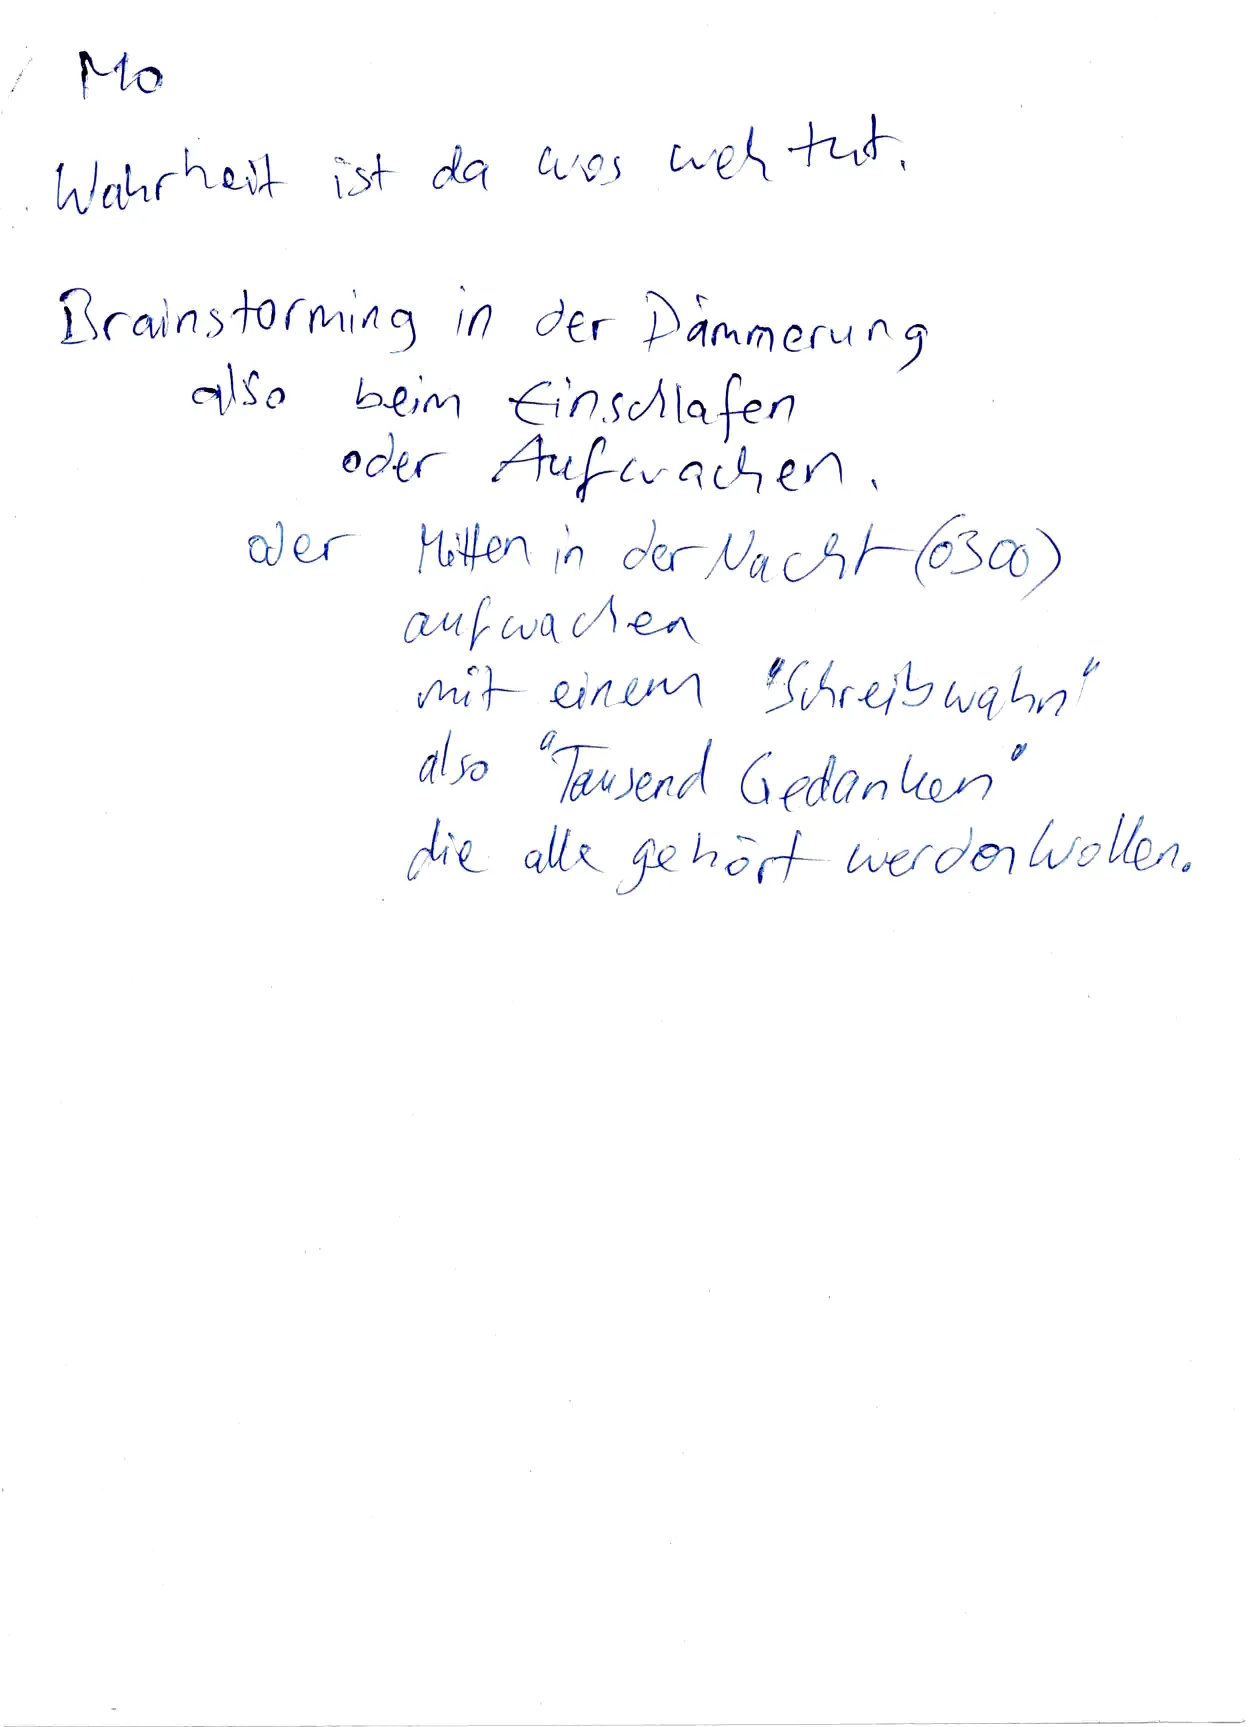 Mo
Wahrheit ist da wos weh tut.
Brainstorming in der Dämmerung
also beim Einschlafen
oder Aufwachen.
oder Mitten in der Nacht (0300)
aufwachen
mit einem "Schreibwahn"
also "Tausend Gedanken"
die alle gehört werden wollen.